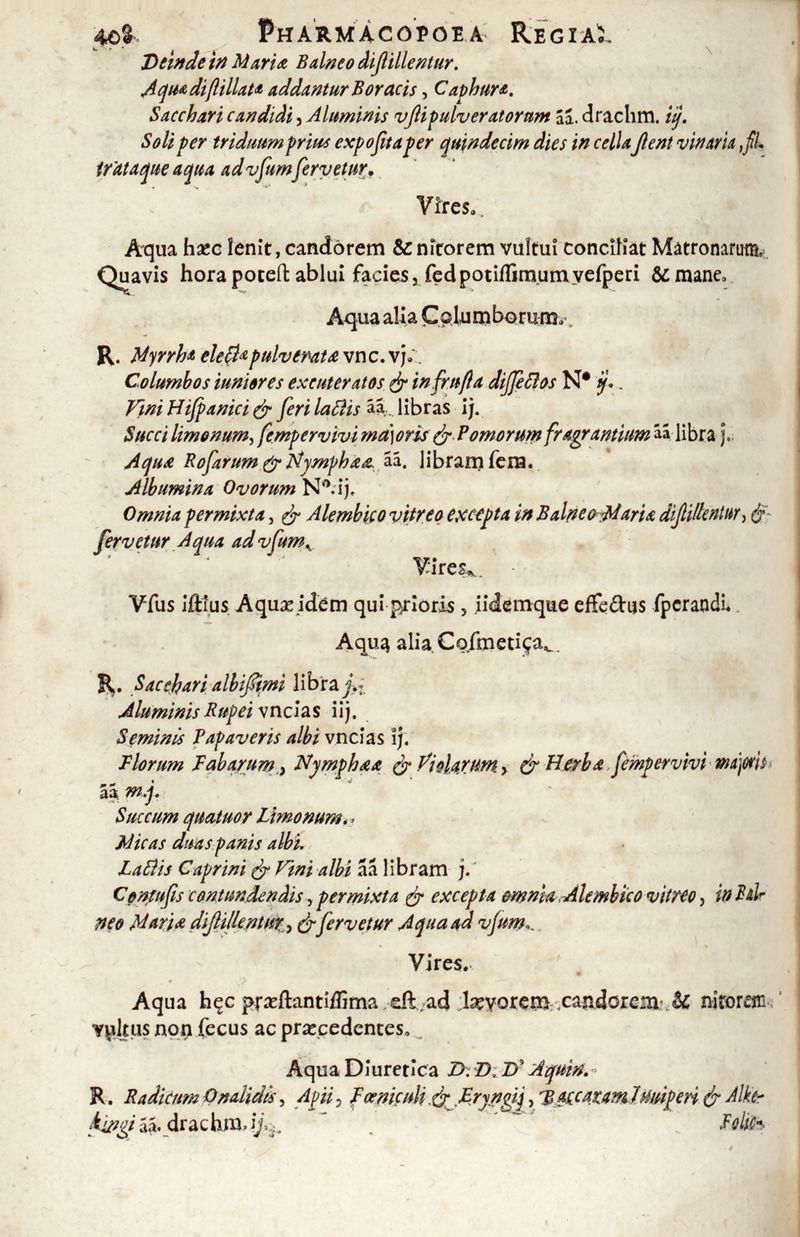 408 PHARMACOPOEA REGIA
Deinde in Mariæ Balneo diſtillentur.
Aquæ diſtillatæ addantur Boracis, Caphuræ.
Sacchari candidi, Aluminis vſti pulveratorum āā. drachm. iij.
Soli per triduum prius expoſita per quindecim dies in cella ſtent vinaria, fil-
trataque aqua ad vſum ſervetur.
Vires.
Aqua hæc lenit, candorem & nitorem vultui conciliat Matronarum.
Quavis hora poteſt ablui facies, ſed potiſſimum veſperi & mane.
Aqua alia Columborum.
R. Myrrhæ electæ pulveratæ vnc. vj.
Columbos iuniores excuteratos & in fruſta diſſectos N° ij.
Vini Hiſpanici & ſeri lactis āā. libras ij.
Succi limonum, ſempervivi majoris & Pomorum fragrantium āā libra j.
Aquæ Roſarum & Nymphææ āā. libram ſem.
Albumina Ovorum N°. ij.
Omnia permixta, & Alembico vitreo excepta in Balneo Mariæ diſtillentur, &
ſervetur Aqua ad vſum.
Vires.
Vſus iſtius Aquæ idem qui prioris, iidemque effectus ſperandi.
Aqua alia Coſmetica.
R. Sacchari albiſsimi libra j.
Aluminis Rupei vncias iij.
Seminis Papaveris albi vncias ij.
Florum Fabarum, Nymphææ & Violarum, & Herbæ ſempervivi majoris
āā m.j.
Succum quatuor Limonum.
Micas duas panis albi.
Lactis Caprini & Vini albi āā libram j.
Contuſis contundendis, permixta & excepta omnia Alembico vitreo, in Bal-
neo Mariæ diſtillentur, & ſervetur Aqua ad vſum.
Vires.
Aqua hęc præſtantiſſima eſt ad lævorem candorem & nitorem
vultus non ſecus ac præcedentes.
Aqua Diuretica D. D. D' Aquin.
R. Radicum Onalidis, Apii, Fœniculi & Eryngij, Baccarum Iuniperi & Alke-
kingi āā. drachm. ij.
Folio-